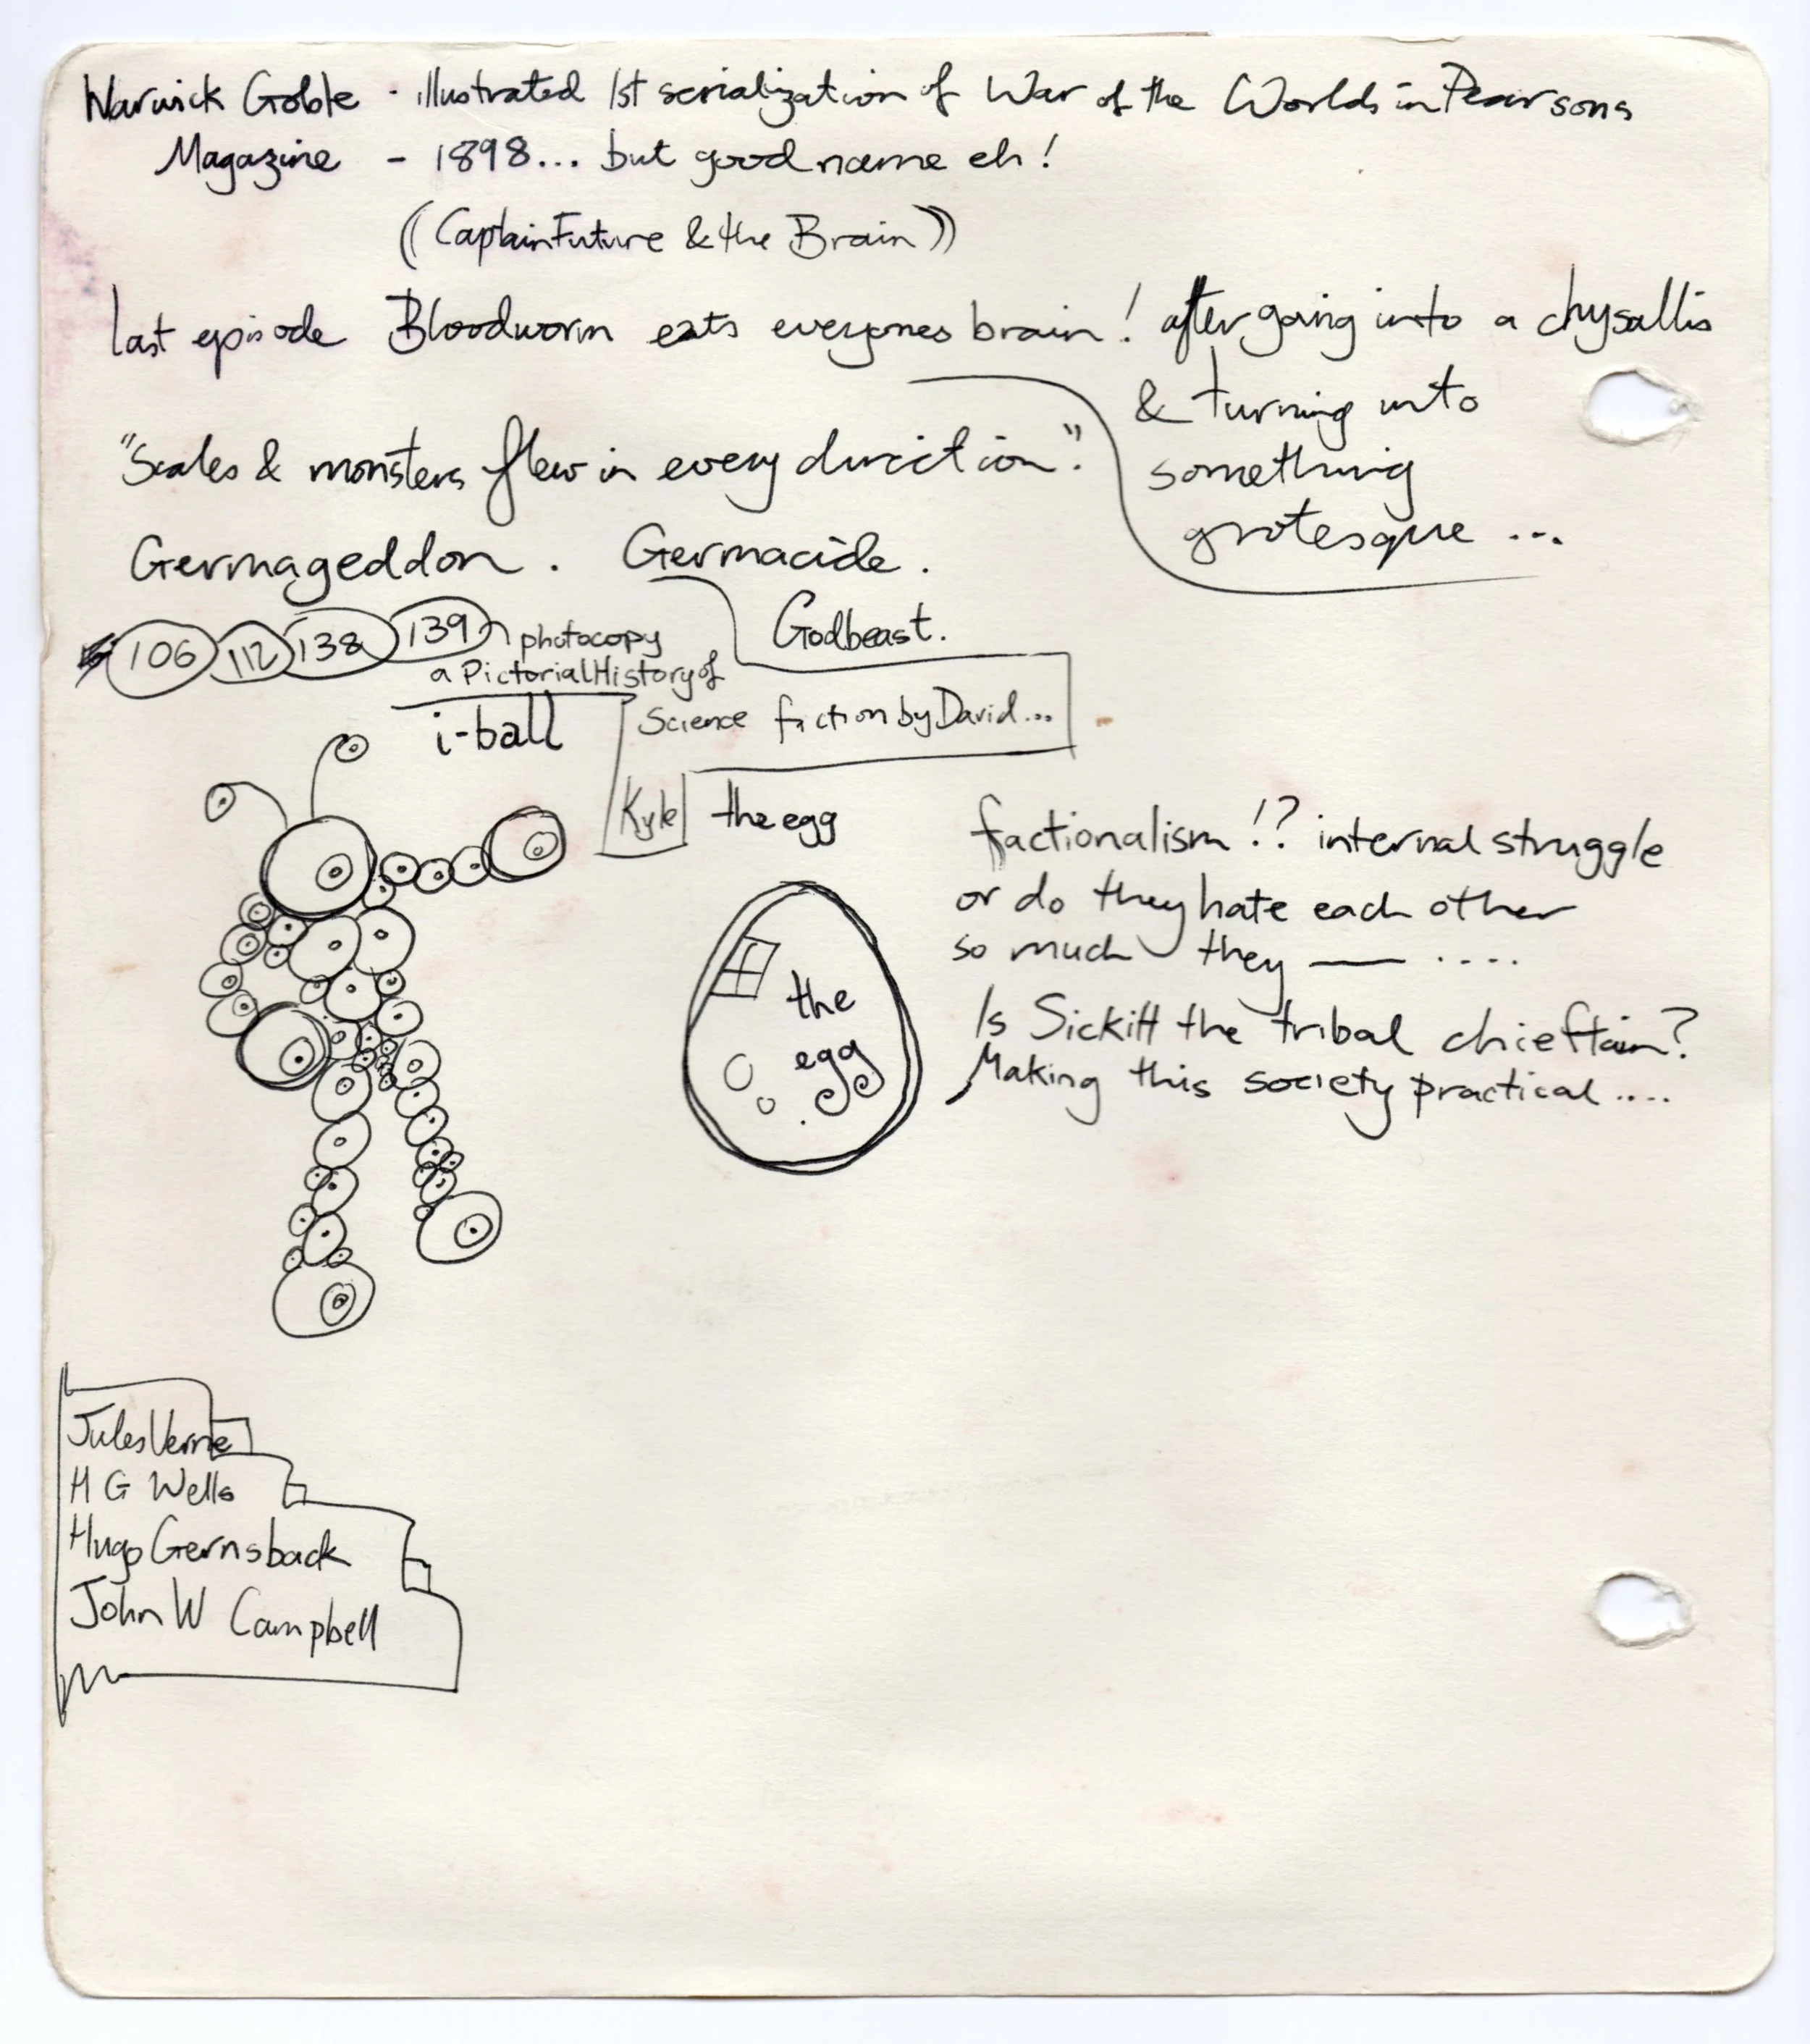 Warwick Goble - illustrated 1st serialization of War of the Worlds in Pearsons
Magazine - 1898... but good name eh!
((Captain Future & the Brain))
last episode Bloodworm eats everyones brain! after going into a chysallis
& turning into
something
grotesque ...
"Scales & monsters flew in every direction".
Germageddon. Germacide.
Godbeast.
106 112 138 139 photocopy
a Pictorial History of
Science fiction by David...
Kyle
i-ball
the egg
the
egg
factionalism!? internal struggle
or do they hate each other
so much they — ....
Is Sickitt the tribal chieftain?
Making this society practical ....
Jules Verne
H G Wells
Hugo Gernsback
John W Campbell